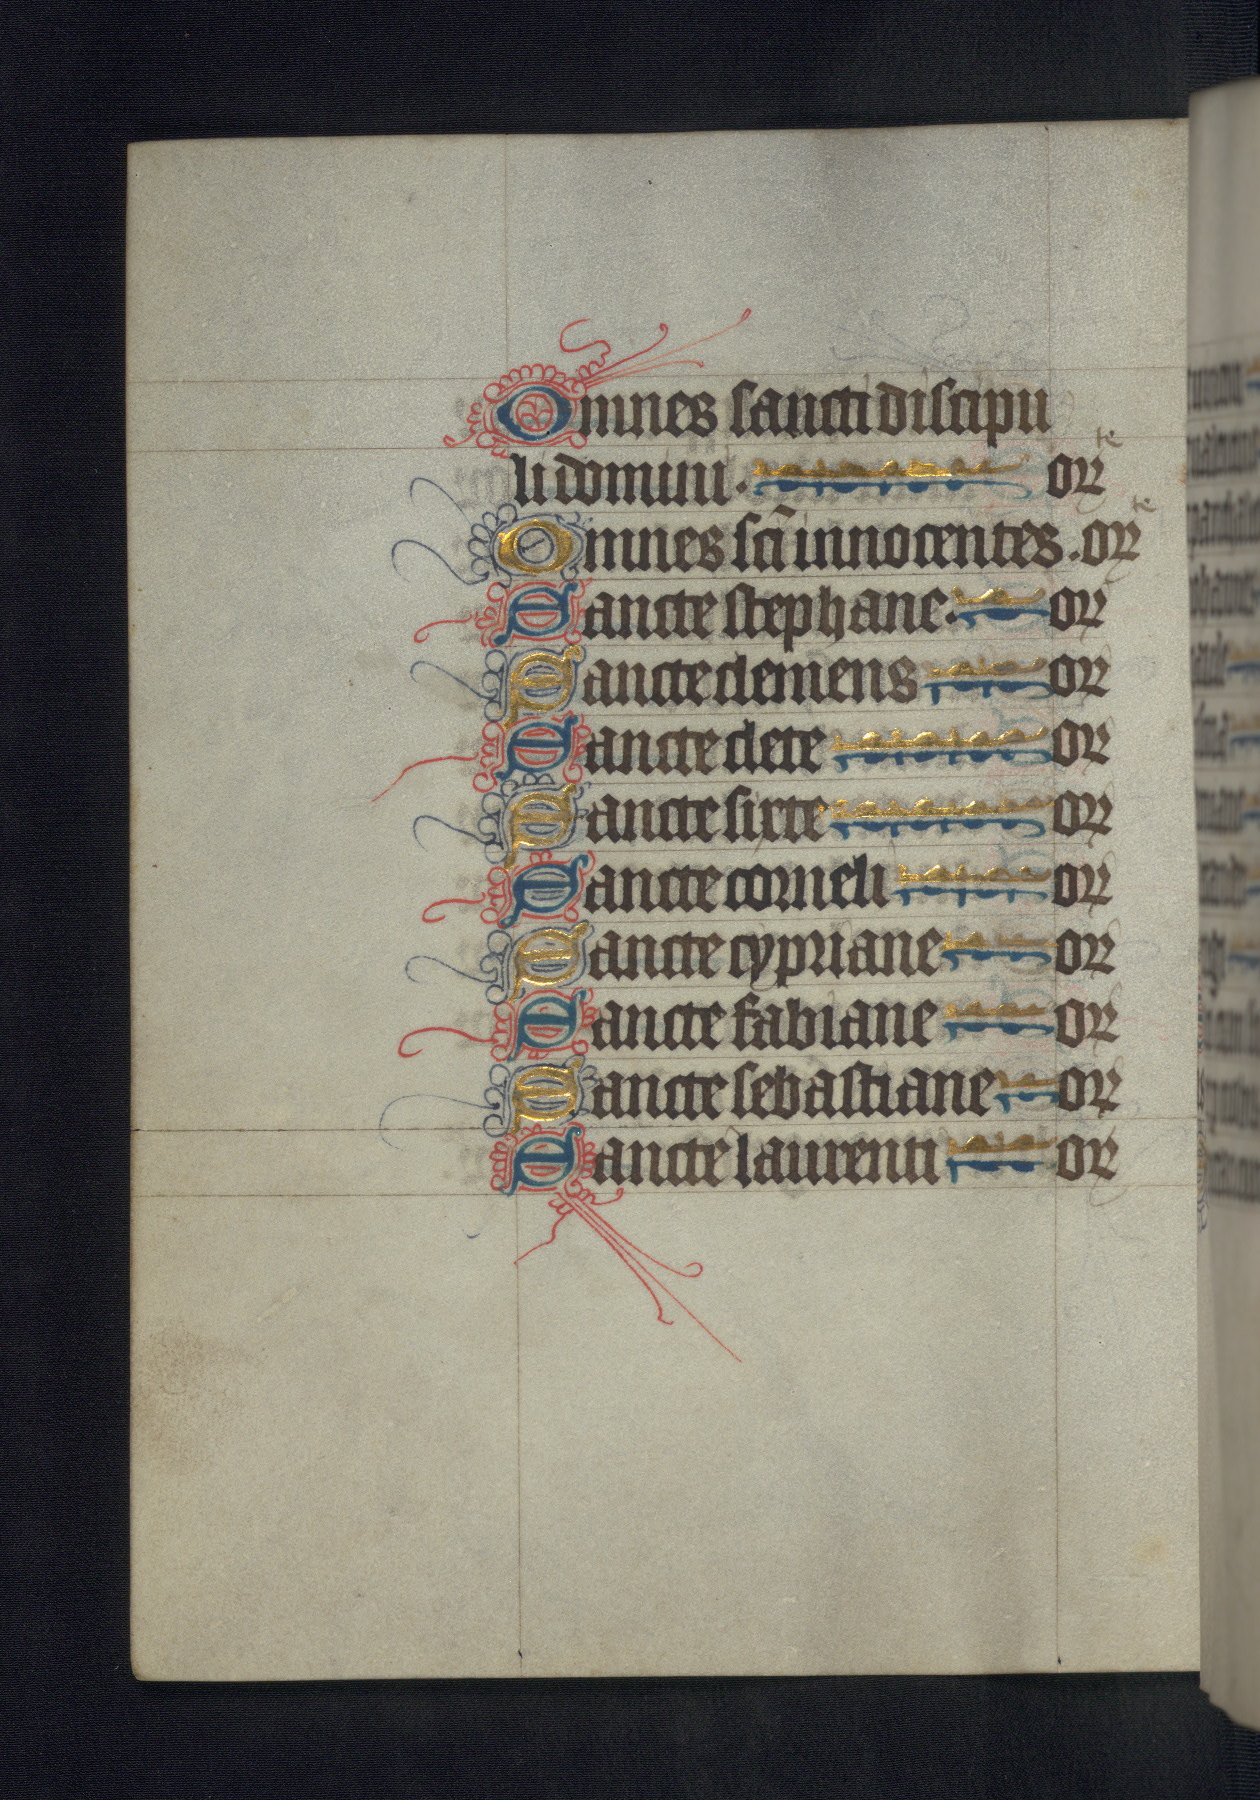 Omnes sancti discipu
li domini. orte
Omnes sci innocentes. orte
Sancte stephane. or
Sancte clemens or
Sancte clete or
Sancte sixte or
Sancte corneli or
Sancte cypriane or
Sancte fabiane or
Sancte sebastiane or
Sancte laurenti or